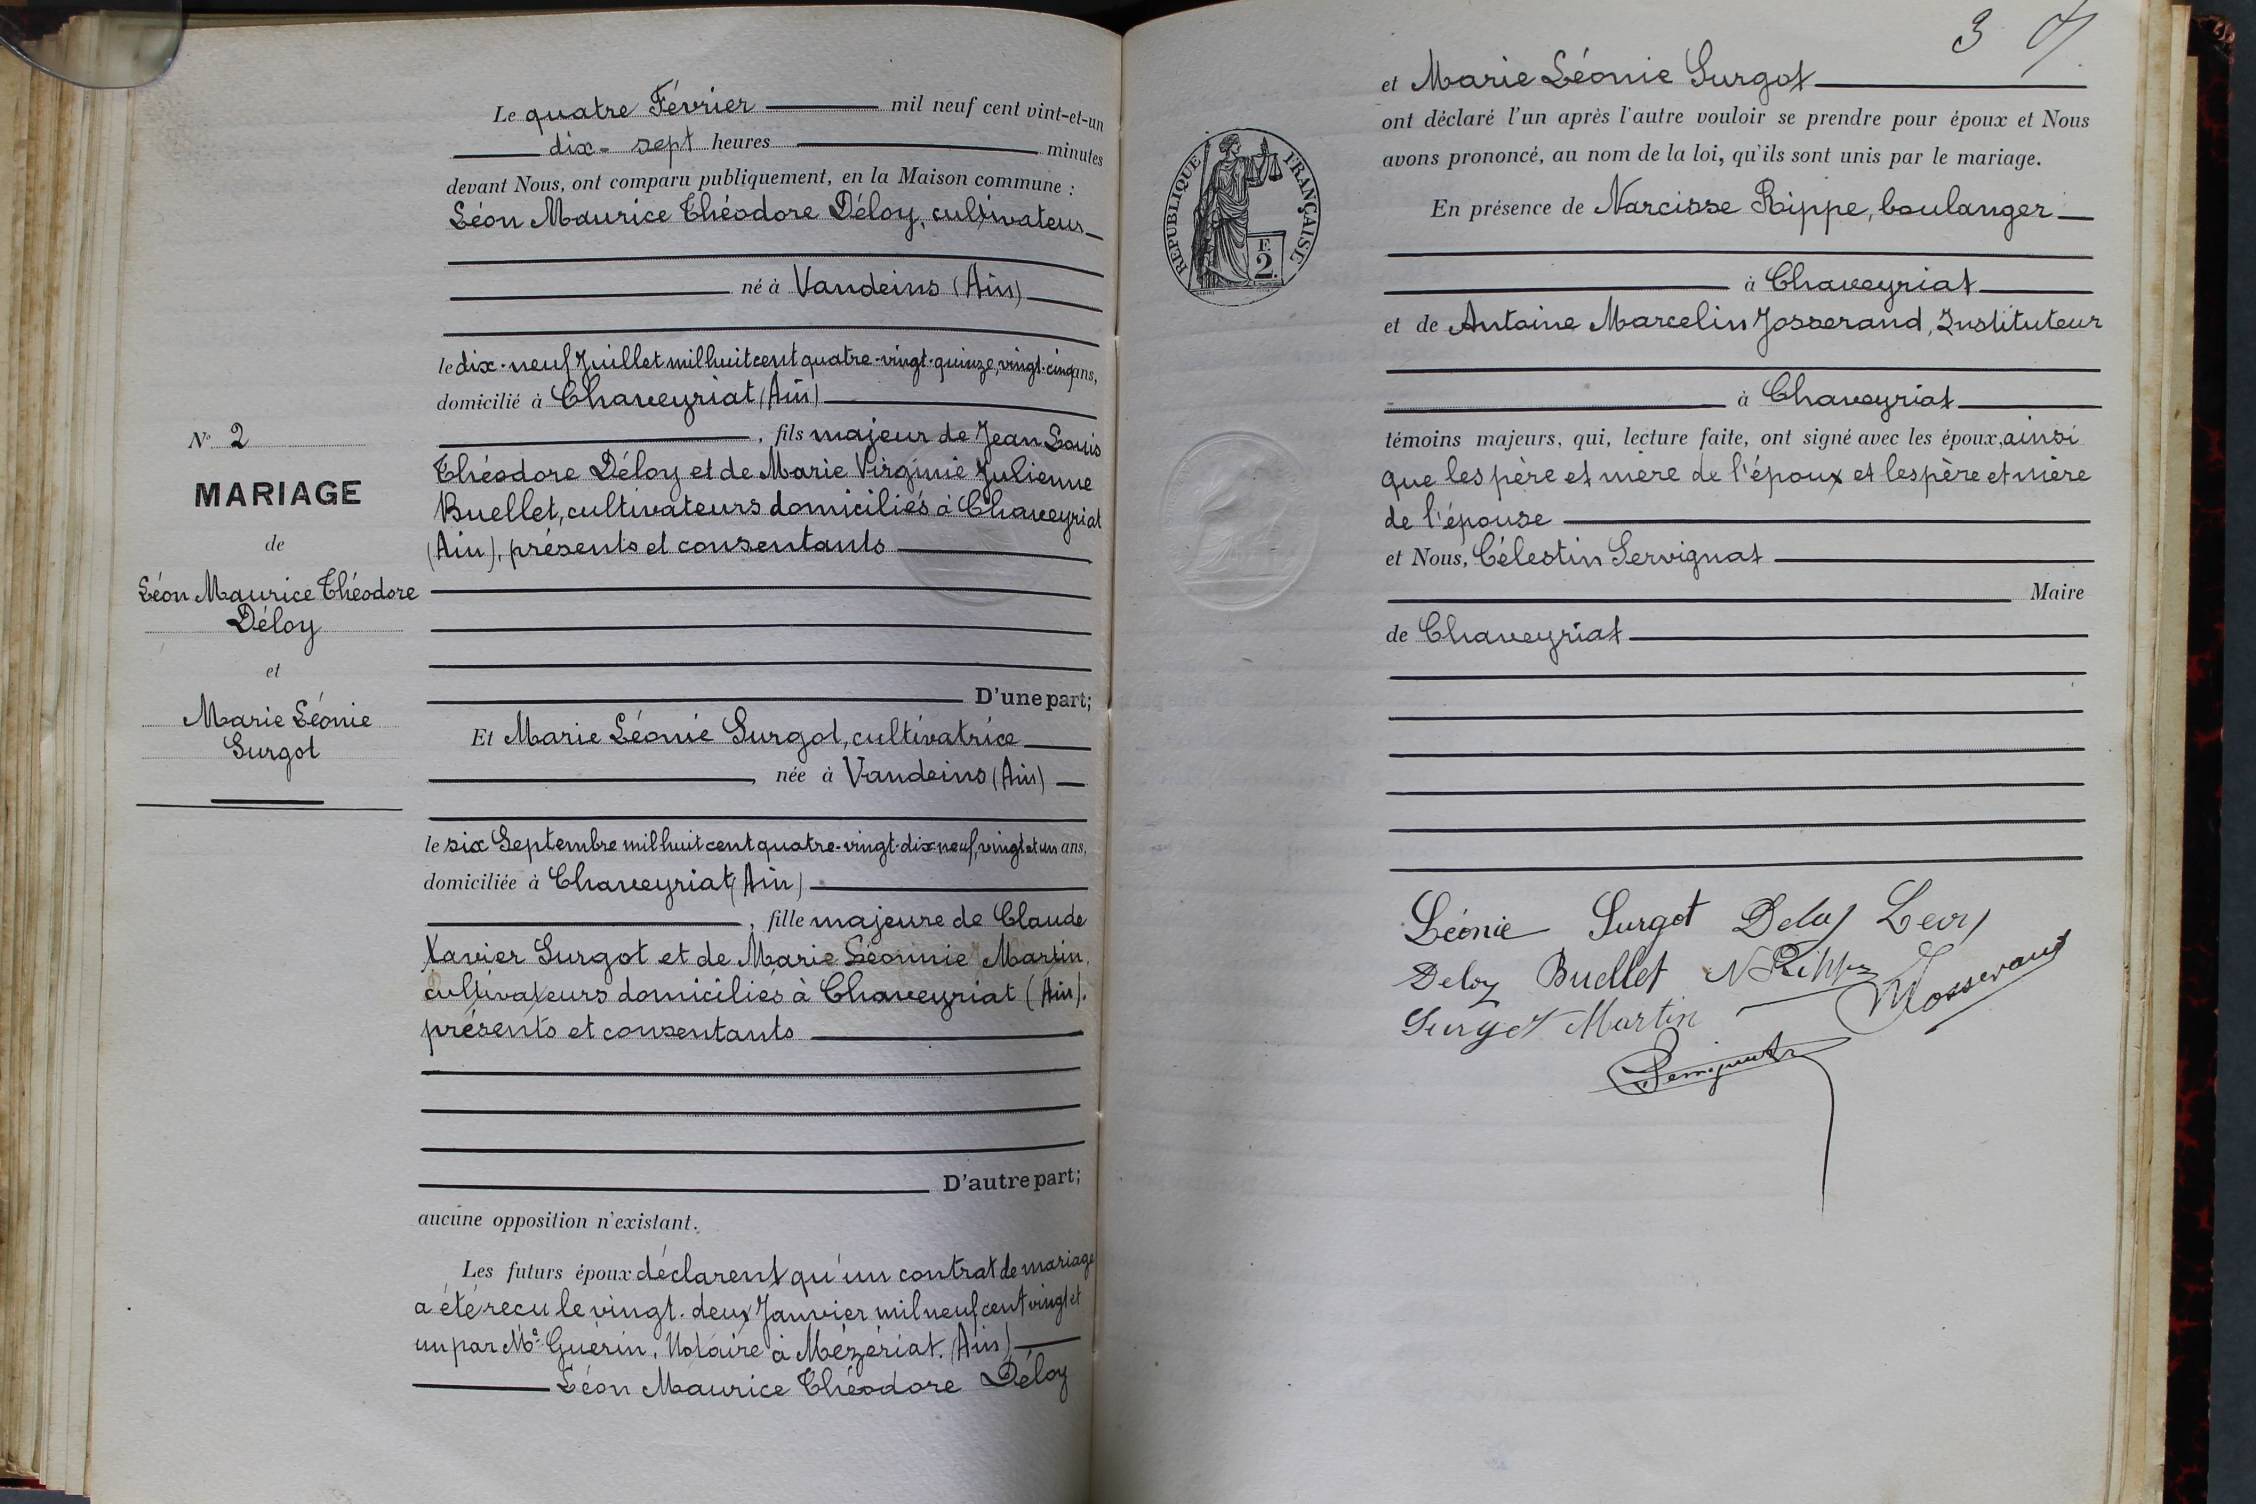 N° 2
MARIAGE
de
Léon Maurice Théodore
Déloy
et
Marie Léonie
Surgot
Le quatre Février mil neuf cent vint-et-un
dix-sept heures minutes
devant Nous, ont comparu publiquement, en la Maison commune :
Léon Maurice Théodore Déloy, cultivateur
né à Vandeins (Ain)
le dix-neuf Juillet mil huit cent quatre-vingt-quinze, vingt-cinq ans,
domicilié à Chaveyriat (Ain)
, fils majeur de Jean Louis
Théodore Déloy et de Marie Virginie Julienne
Buellet, cultivateurs domiciliés à Chaveyriat
(Ain), présents et consentants
D'une part;
Et Marie Léonie Surgot, cultivatrice
, née à Vandeins (Ain)
le six Septembre mil huit cent quatre-vingt-dix-neuf, vingt et un ans,
domiciliée à Chaveyriat (Ain)
, fille majeure de Claude
Xavier Surgot et de Marie Léonnie Martin,
cultivateurs domiciliés à Chaveyriat (Ain).
présents et consentants
D'autre part;
aucune opposition n'existant.
Les futurs époux déclarent qu'un contrat de mariage
a été recu le vingt-deux Janvier mil neuf cent vingt et
un par Me Guérin, Notaire à Mézériat. (Ain)
Léon Maurice Théodore Déloy
3
et Marie Léonie Surgot
ont déclaré l'un après l'autre vouloir se prendre pour époux et Nous
avons prononcé, au nom de la loi, qu'ils sont unis par le mariage.
RÉPUBLIQUE FRANÇAISE
F.
2.
En présence de Narcisse Rippe, boulanger
à Chaveyriat
et de Antoine Marcelin Josserand, Instituteur
à Chaveyriat
témoins majeurs, qui, lecture faite, ont signé avec les époux, ainsi
que les père et mère de l'époux et les père et mère
de l'épouse
et Nous, Célestin Servignat
Maire
de Chaveyriat
Léonie Surgot Deloy Léon
Deloy Buellet N Rippe Josserand
Surgot Martin
Servignat